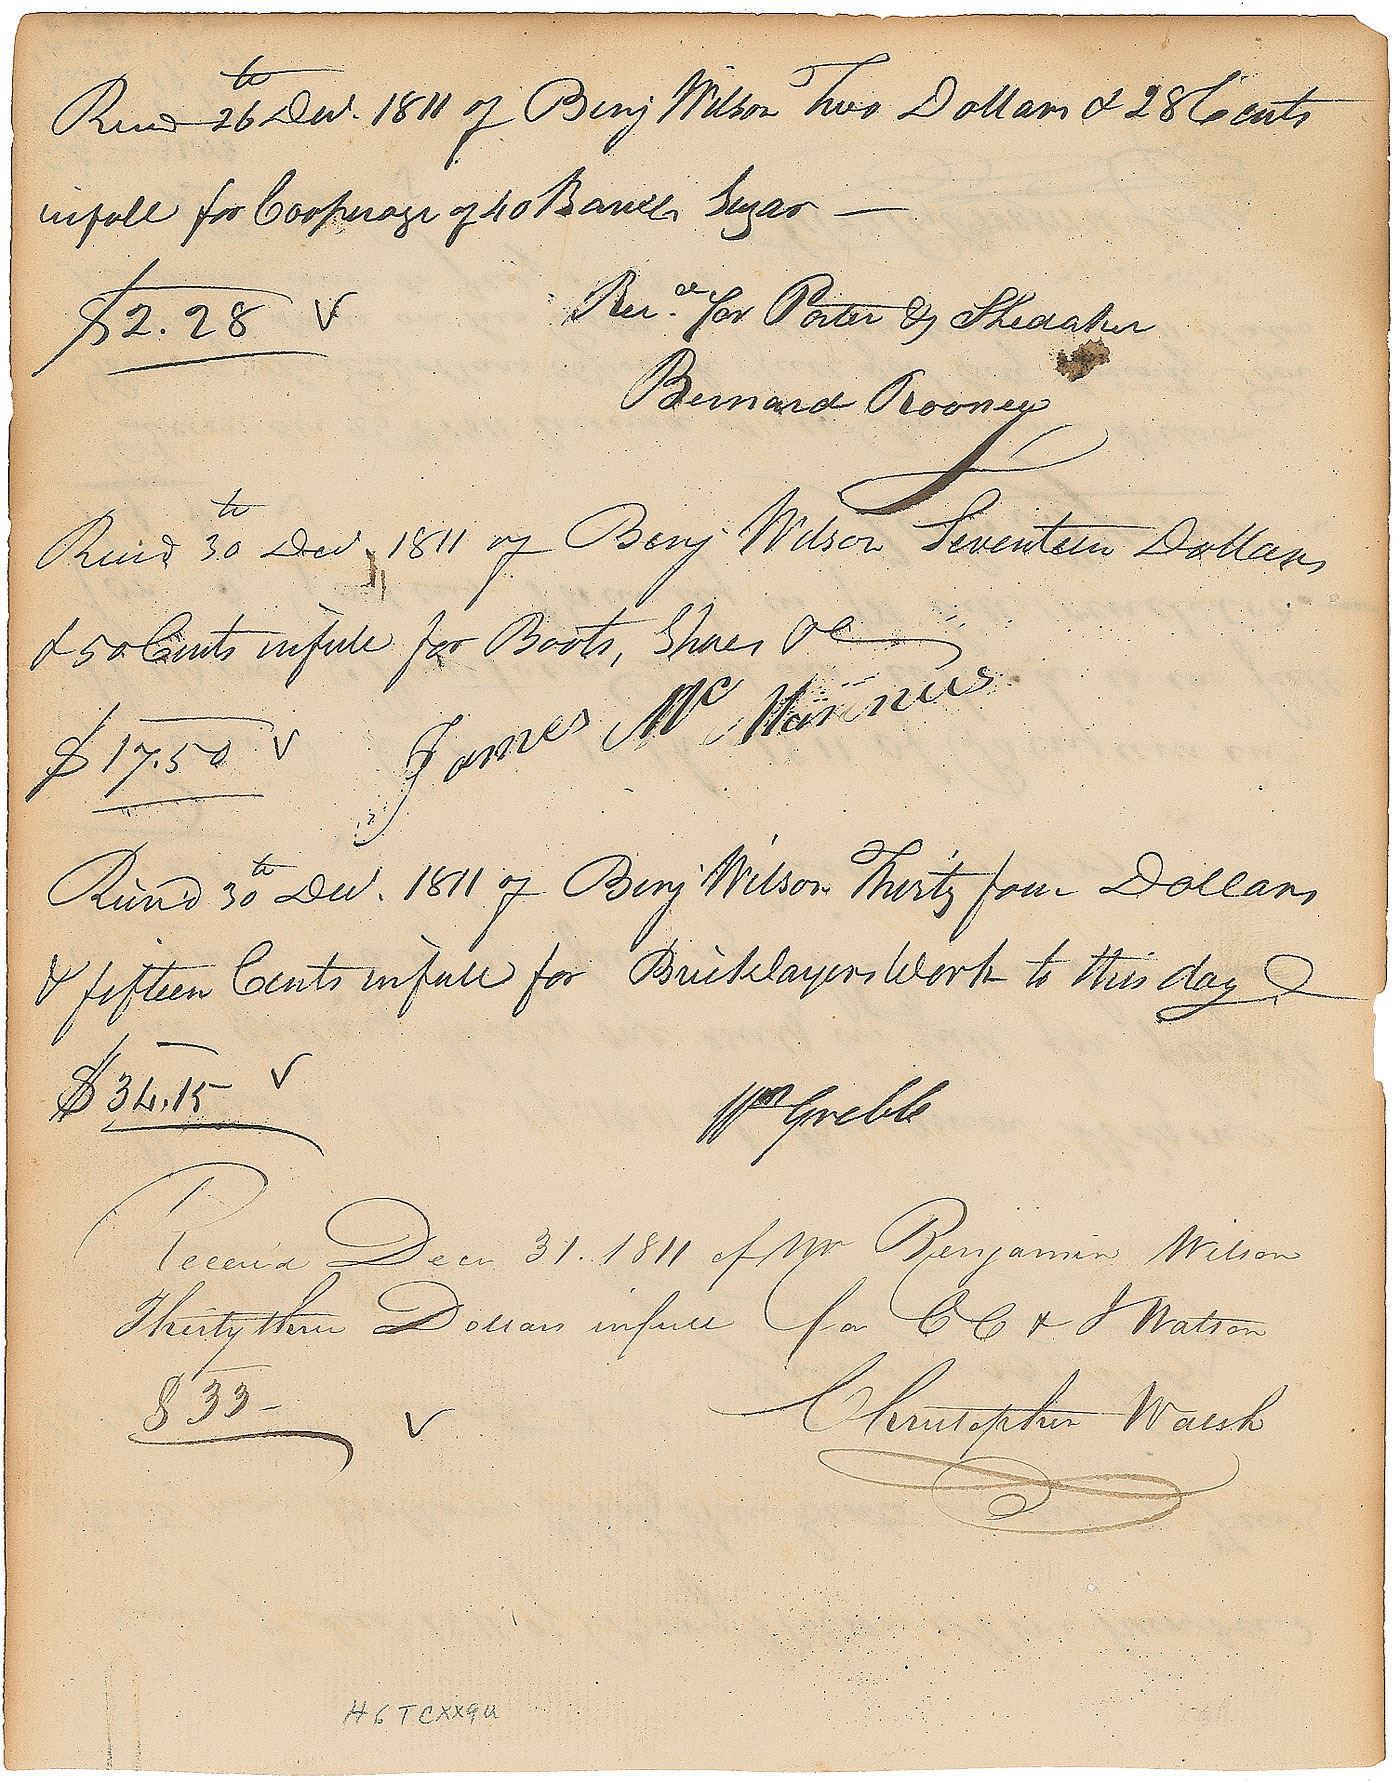 Recd 26th Decr. 1811 of Benj Wilson Two Dollars & 28 Cents
in full for Cooperage of 40 Barrels Sugar —
$2.28 V
Recd. for Porter & Shedaker
Bernard Rooney
Recd 30th Decr. 1811 of Benj Wilson Seventeen Dollars
& 50 Cents in full for Boots, Shoes &c
$17.50 V
James Mc Mannus
Recd 30th Decr. 1811 of Benj Wilson Thirty four Dollars
& fifteen Cents in full for Bricklayers Work to this day
$34.15 V
Wm Greble
Receivd Decr 31. 1811 of Mr Benjamin Wilson
Thirty three Dollars in full for C C & J Watson
$33- V
Christopher Walsh
H6TCXX9U